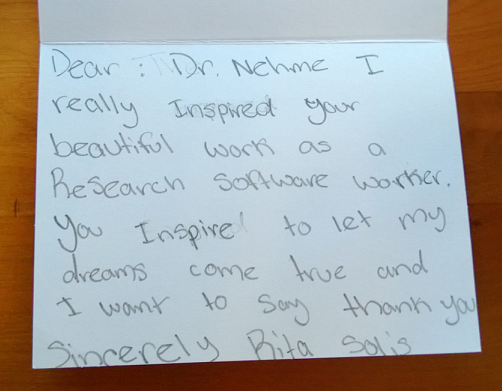 Dear : Dr. Nehme I
really Inspired your
beautiful work as a
Research Software worker.
You Inspire to let my
dreams come true and
I want to say thank you
Sincerely Rita Solis